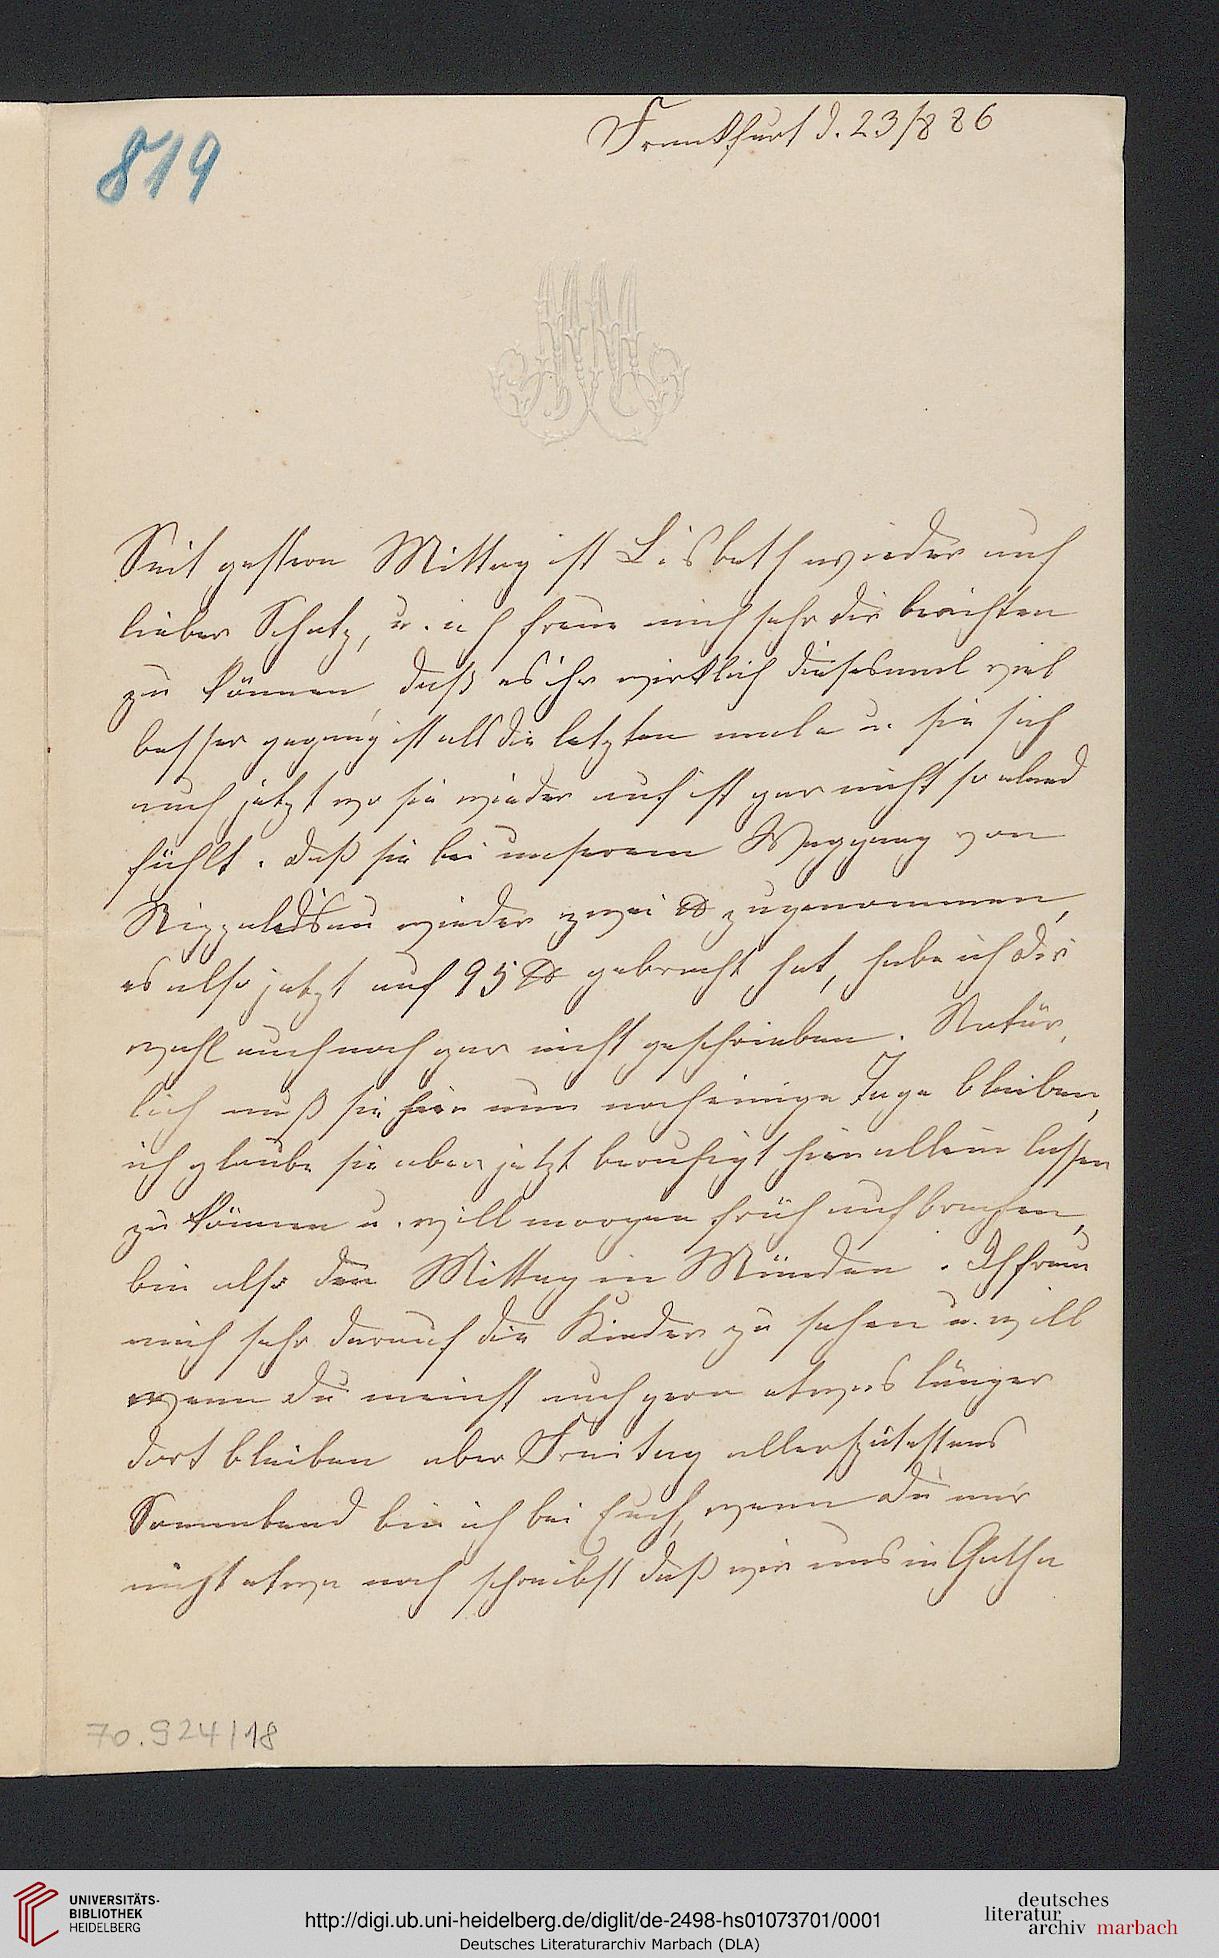 819
Frankfurt d. 23/8 86
Seit gestern Mittag ist Lisbeth wieder auf
lieber Schatz, u. ich freue mich sehr dir berichten
zu können, daß es ihr wirklich diesesmal viel
besser gegang ist als die letzten male u. sie sich
auch jetzt wo sie wieder auf ist gar nicht so elend
fühlt. Daß sie bei unserem Weggang von
Rippoldsau wieder zwei ℔ zugenommen,
es also jetzt auf 95 ℔ gebracht hat, habe ich dir
wohl auch noch gar nicht geschrieben. Natür,
lich muß sie hier nun noch einige Tage bleiben,
ich glaube sie aber jetzt beruhigt hier allein lassen
zu können u. will morgen früh aufbrechen,
bin also den Mittag in Münden. Ich freue
mich sehr darauf die Kinder zu sehen u. will
wenn du meinst auch gern etwas länger
dort bleiben aber Freitag allerspätestens
Sonnabend bin ich bei Euch, wenn du mir
nicht etwa noch schreibst daß wir uns in Gotha
70.924/18
UNIVERSITÄTS-
BIBLIOTHEK
HEIDELBERG
http://digi.ub.uni-heidelberg.de/diglit/de-2498-hs01073701/0001
Deutsches Literaturarchiv Marbach (DLA)
deutsches
literatur
archiv marbach